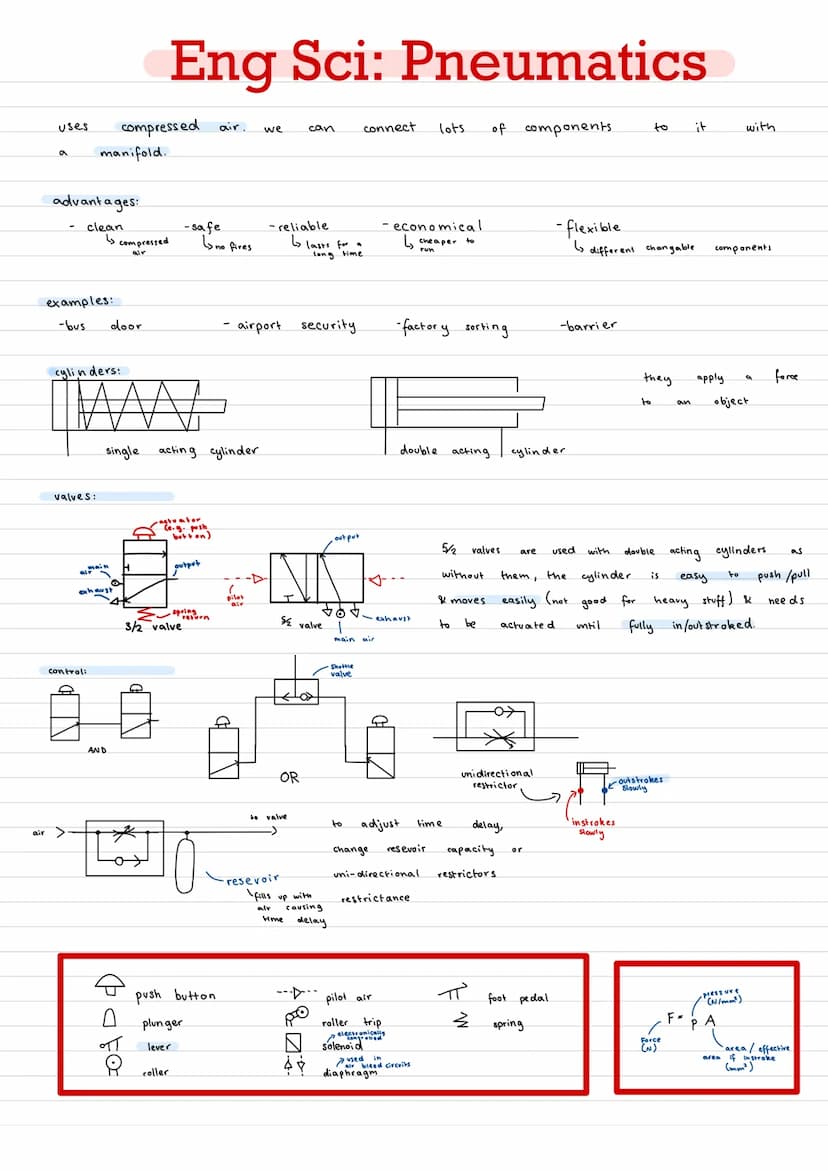 Eng Sci: Pneumatics
uses compressed air. we can connect lots of components to it with
a manifold.
advantages:
- clean -safe -reliable -economical -flexible
↳ compressed air ↳ no fires ↳ lasts for a long time ↳ cheaper to run ↳ different changable components
examples:
-bus door - airport security -factory sorting -barrier
cylinders:
they apply a force
to an object
single acting cylinder
double acting cylinder
valves:
actuator
(e.g. push
button)
main
air
output
exhaust
spring
return
3/2 valve
output
pilot
air
5/2 valve
exhaust
main air
5/2 valves are used with double acting cylinders as
without them, the cylinder is easy to push/pull
& moves easily (not good for heavy stuff) & needs
to be actuated until fully in/outstroked.
control:
AND
shuttle
valve
OR
unidirectional
restrictor
outstrokes
slowly
instrokes
slowly
air
to valve
resevoir
↳ fills up with
air causing
time delay
to adjust time delay,
change resevoir capacity or
uni-directional restrictors
restrictance
push button
plunger
lever
roller
pilot air
roller trip
electronically
controlled
solenoid
used in
air bleed circuits
diaphragm
foot pedal
spring
pressure
(N/mm²)
F= p A
Force
(N)
area / effective
area if instroke
(mm²)